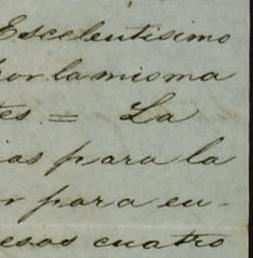 Escelentisimo
por la misma
tes. = La
ias para la
r para cu-
esos cuatro